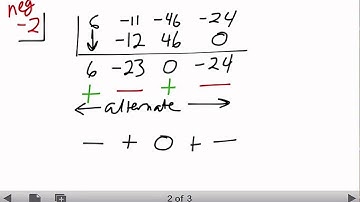 neg
-2
6 -11 -46 -24
-12 46 0
6 -23 0 -24
+ - + -
alternate
- + 0 + -
2 of 3